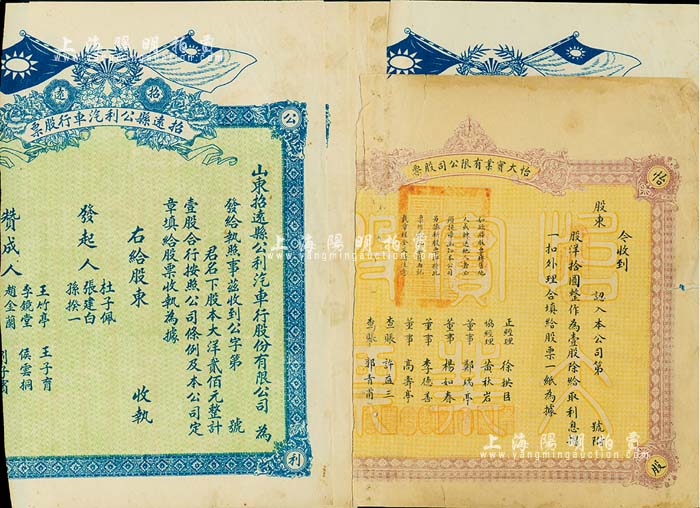 招遠
招遠縣公利汽車行股票
公
利
山東招遠縣公利汽車行股份有限公司 為
發給執照事茲收到公字第 號
君名下股本大洋貳佰元整計
壹股合行按照公司條例及本公司定
章填給股票收執為據
右給股東 收執
發起人
杜子佩
張建白
孫揆一
贊成人
王竹亭 王子育
李鏡堂 侯雲桐
趙金蘭
怡大實業有限公司股票
怡
股
今收到
股東 認入本公司第 號附
股洋拾圓整作為壹股除給取利息摺
一扣外理合填給股票一紙為據
正經理 徐拱臣
協經理 黃秋岩
董事 鄭瑞亭
董事 楊如春
董事 李德善
董事 高壽亭
查賬 許益三
查賬 郭青甫
上海陽明拍賣
www.yangmingauction.com
上海陽明拍賣
www.yangmingauction.com